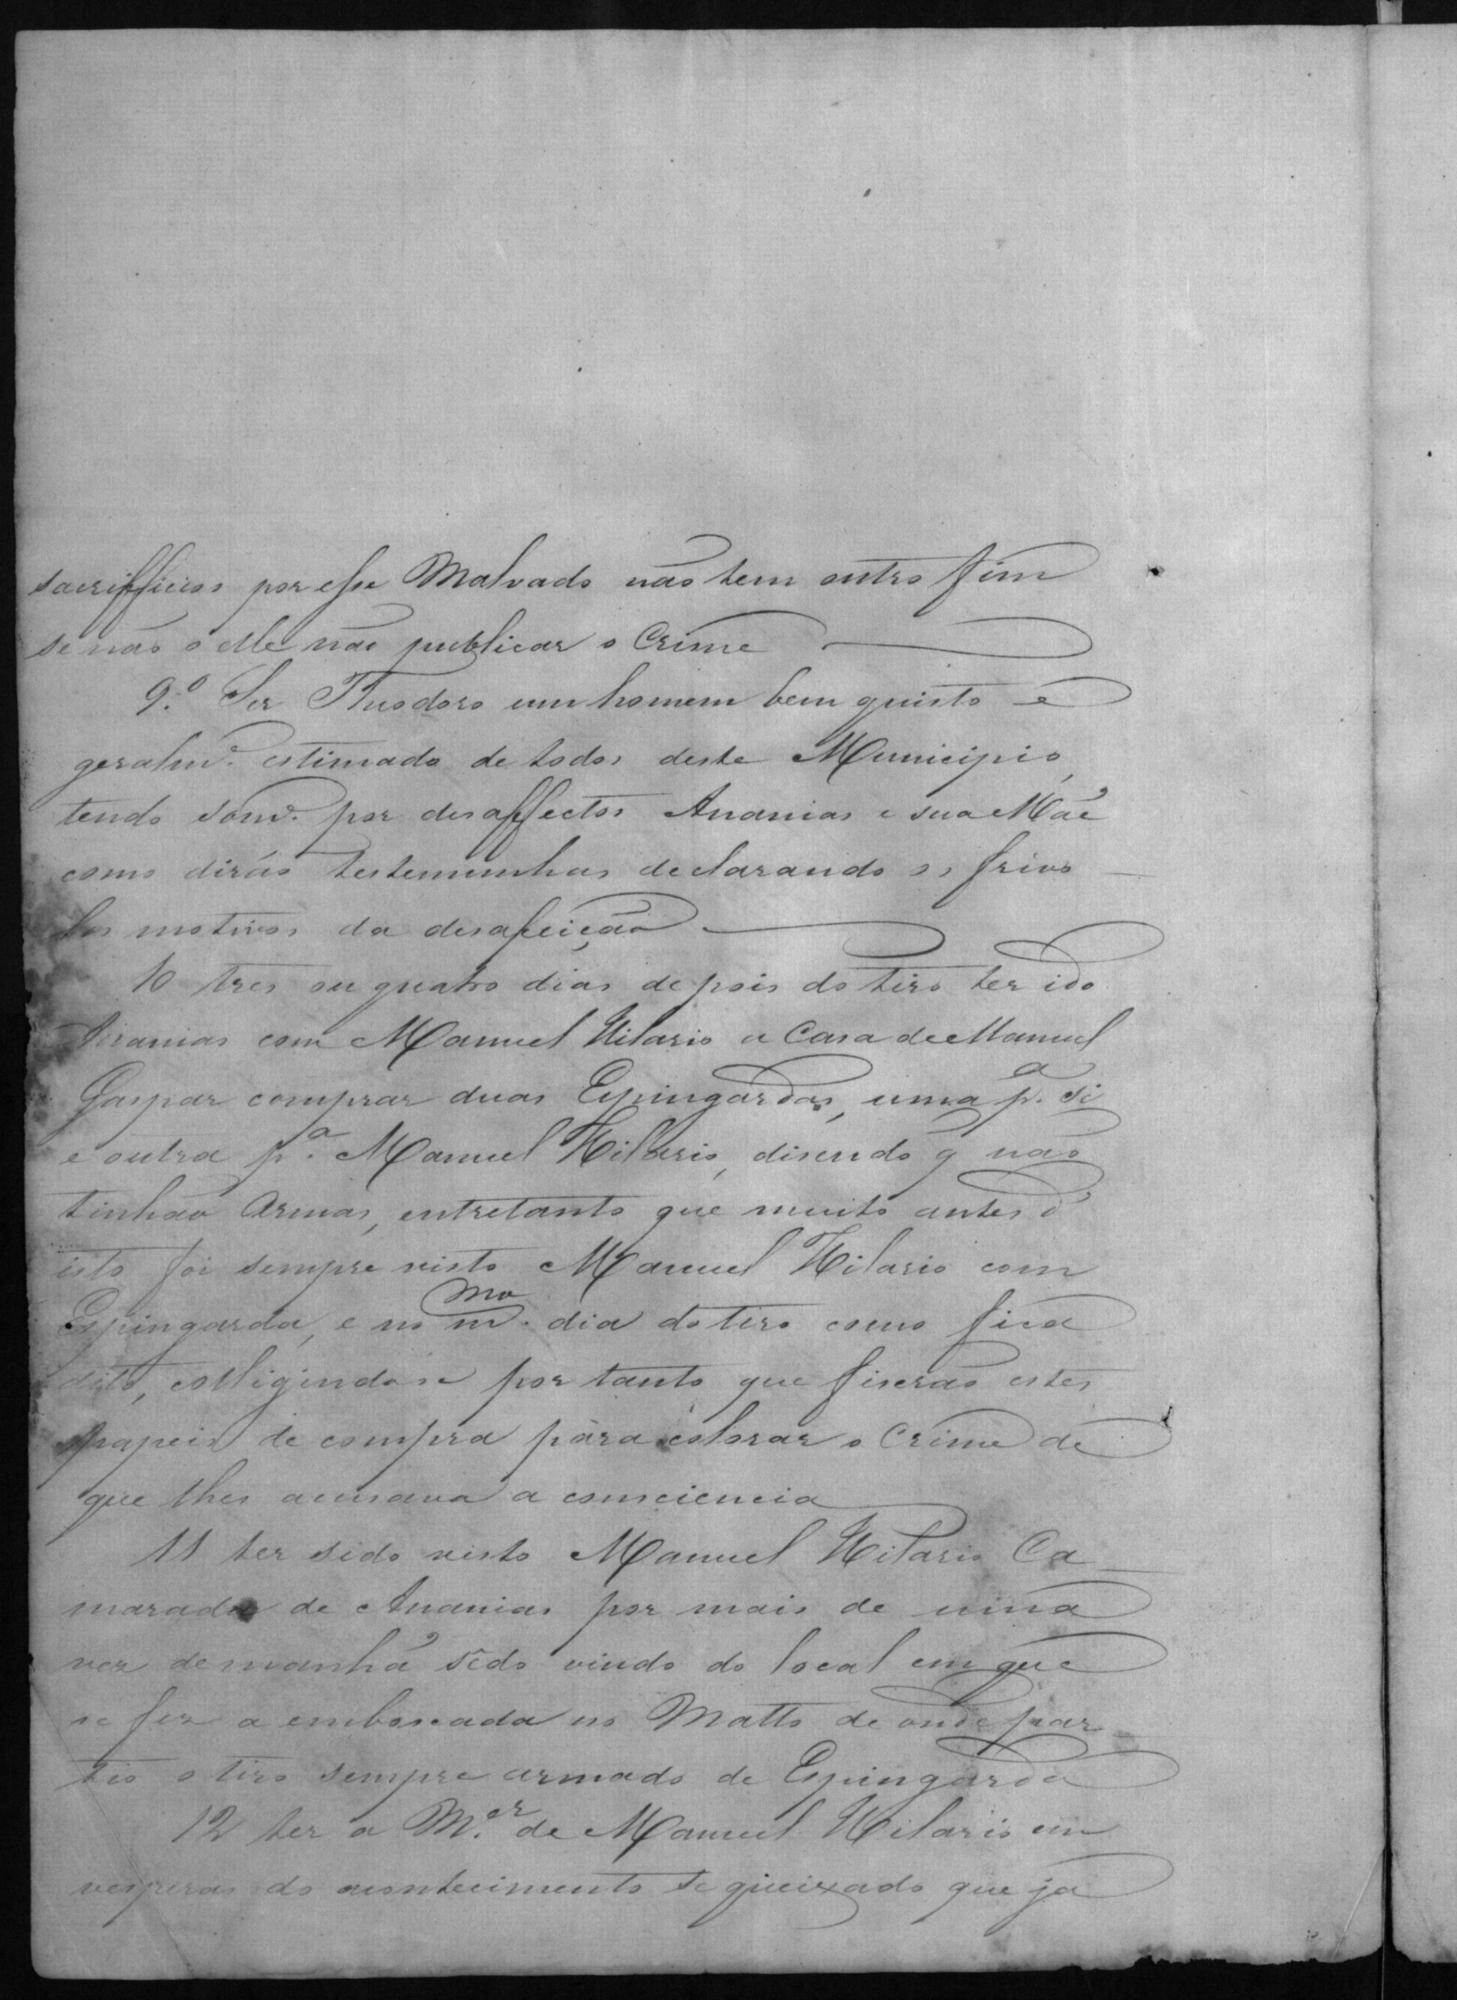 sacrifficios por esse Malvado não tem outro fim
se não o elle não publicar o Crime
9.º Ser Theodoro um homem bem quisto e
geralm.e estimado de todos deste Municipio,
tendo som.e por desaffectos Ananias e sua Mãe
como dirão testemunhas declarando os frivo
los motivos da desafeição
10 tres ou quatro dias depois do tiro ter ido
Ananias com Manuel Hilario a Casa de Manuel
Gaspar comprar duas Espingardas, uma p.a si
e outra p.a Manuel Hilario, disendo q não
tinhão Armas, entretanto que muito antes d'
isto foi sempre visto Manuel Hilario com
Espingarda, e no m.mo dia do tiro como fica
dito, colligindose por tanto que fiserão estes
papeis de compra para colorar o Crime de
que lhes acusava a consciencia
11 ter sido visto Manuel Hilario Ca
marada de Ananias por mais de uma
vez de manhã sedo vindo do local em que
se fez a emboscada no Matto de onde par
tio o tiro sempre armado de Espingarda
12 ter a M.er de Manuel Hilario em
vesperas do acontecimento se queixado que já